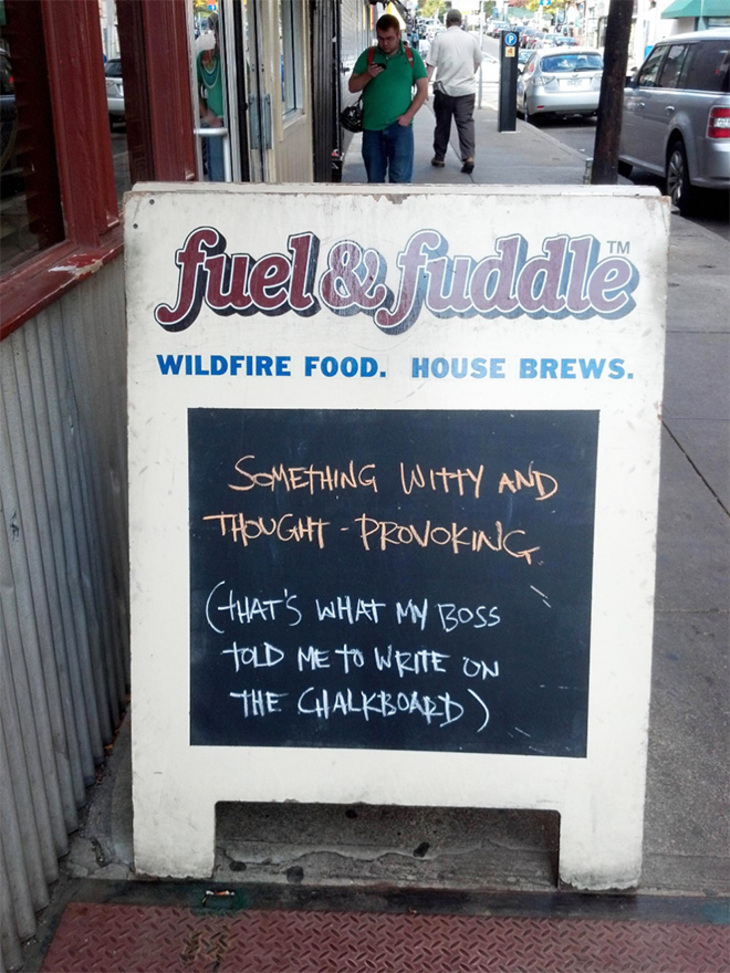 fuel & fuddle™
WILDFIRE FOOD. HOUSE BREWS.
SOMETHING WITTY AND
THOUGHT-PROVOKING
(THAT'S WHAT MY BOSS
TOLD ME TO WRITE ON
THE CHALKBOARD)
P